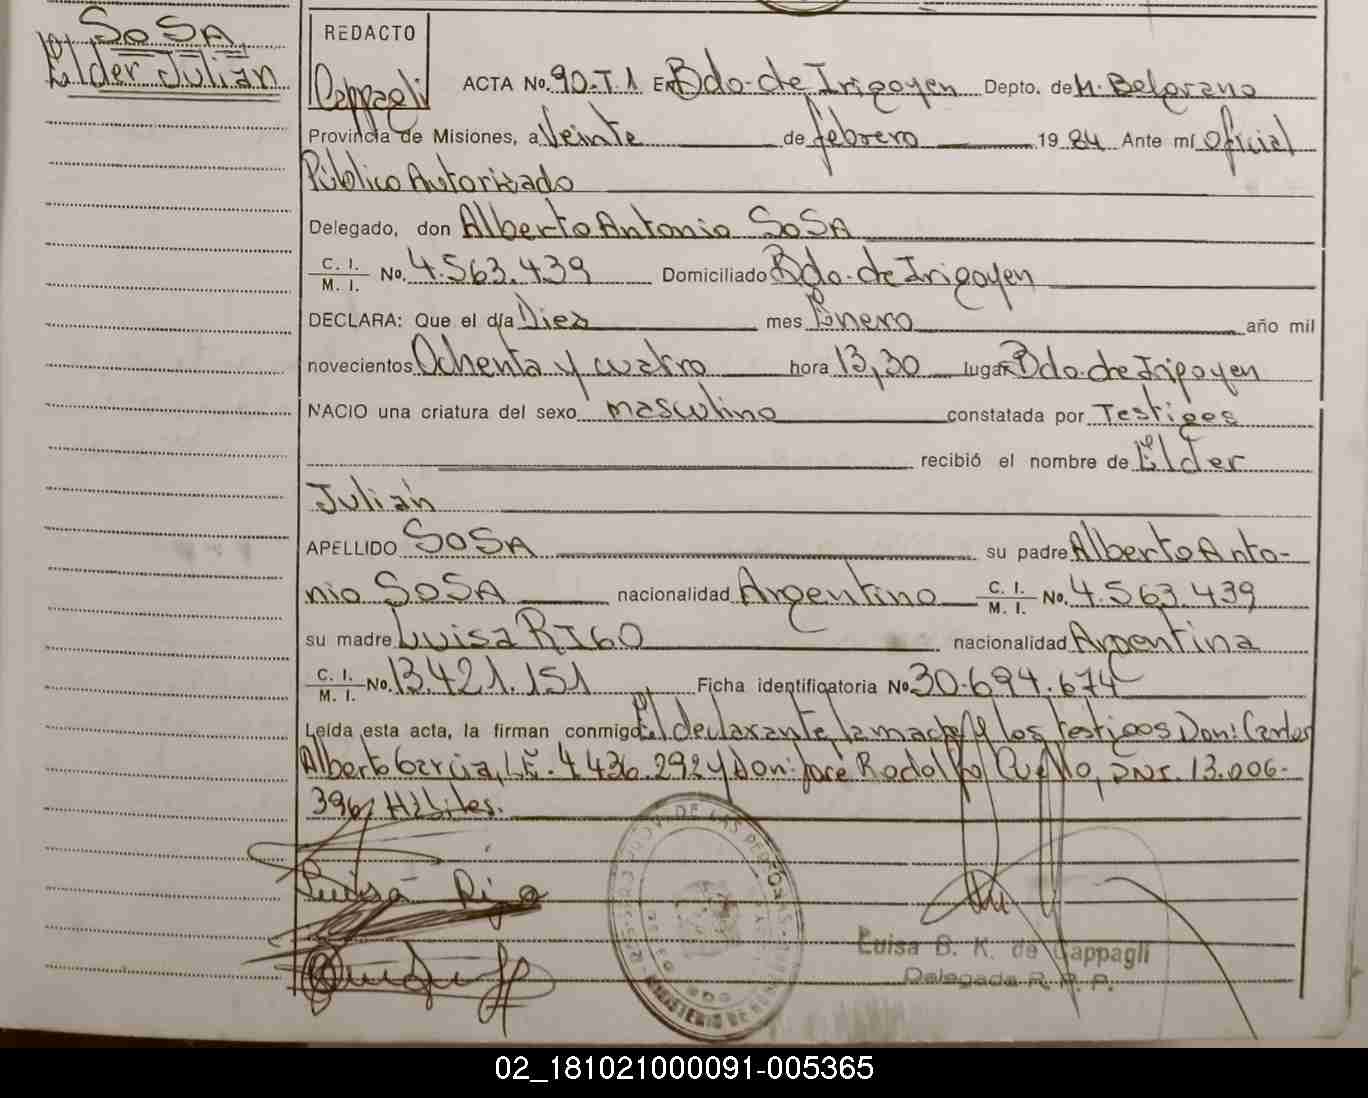 SOSA,
Elder Julián
REDACTO
Cappagli
ACTA No. 90-T.1 En Bdo. de Irigoyen Depto. de M. Belgrano
Provincia de Misiones, a Veinte de febrero 19 84 Ante mí Oficial
Público Autorizado
Delegado, don Alberto Antonio SOSA
C. I.
M. I. No. 4.563.439 Domiciliado Bdo. de Irigoyen
DECLARA: Que el día Diez mes Enero año mil
novecientos Ochenta y cuatro hora 13,30 lugar Bdo. de Irigoyen
NACIO una criatura del sexo masculino constatada por Testigos
recibió el nombre de Elder
Julián
APELLIDO SOSA su padre Alberto Anto-
nio SOSA nacionalidad Argentino C. I. M. I. No. 4.563.439
su madre Luisa RIGO nacionalidad Argentina
C. I. M. I. No. 13.421.151 Ficha identificatoria No 30.694.674
Leída esta acta, la firman conmigo El declarante la madre y los testigos Don: Carlos
Alberto Garcia, L.E. 4.436.292 y Don: José Rodolfo, DNI. 13.006-
396, Hábiles.
Luisa Rigo
Luisa B. K. de Cappagli
Delegada R. P. P.
DE LAS PERSONAS
MINISTERIO DE
02_181021000091-005365